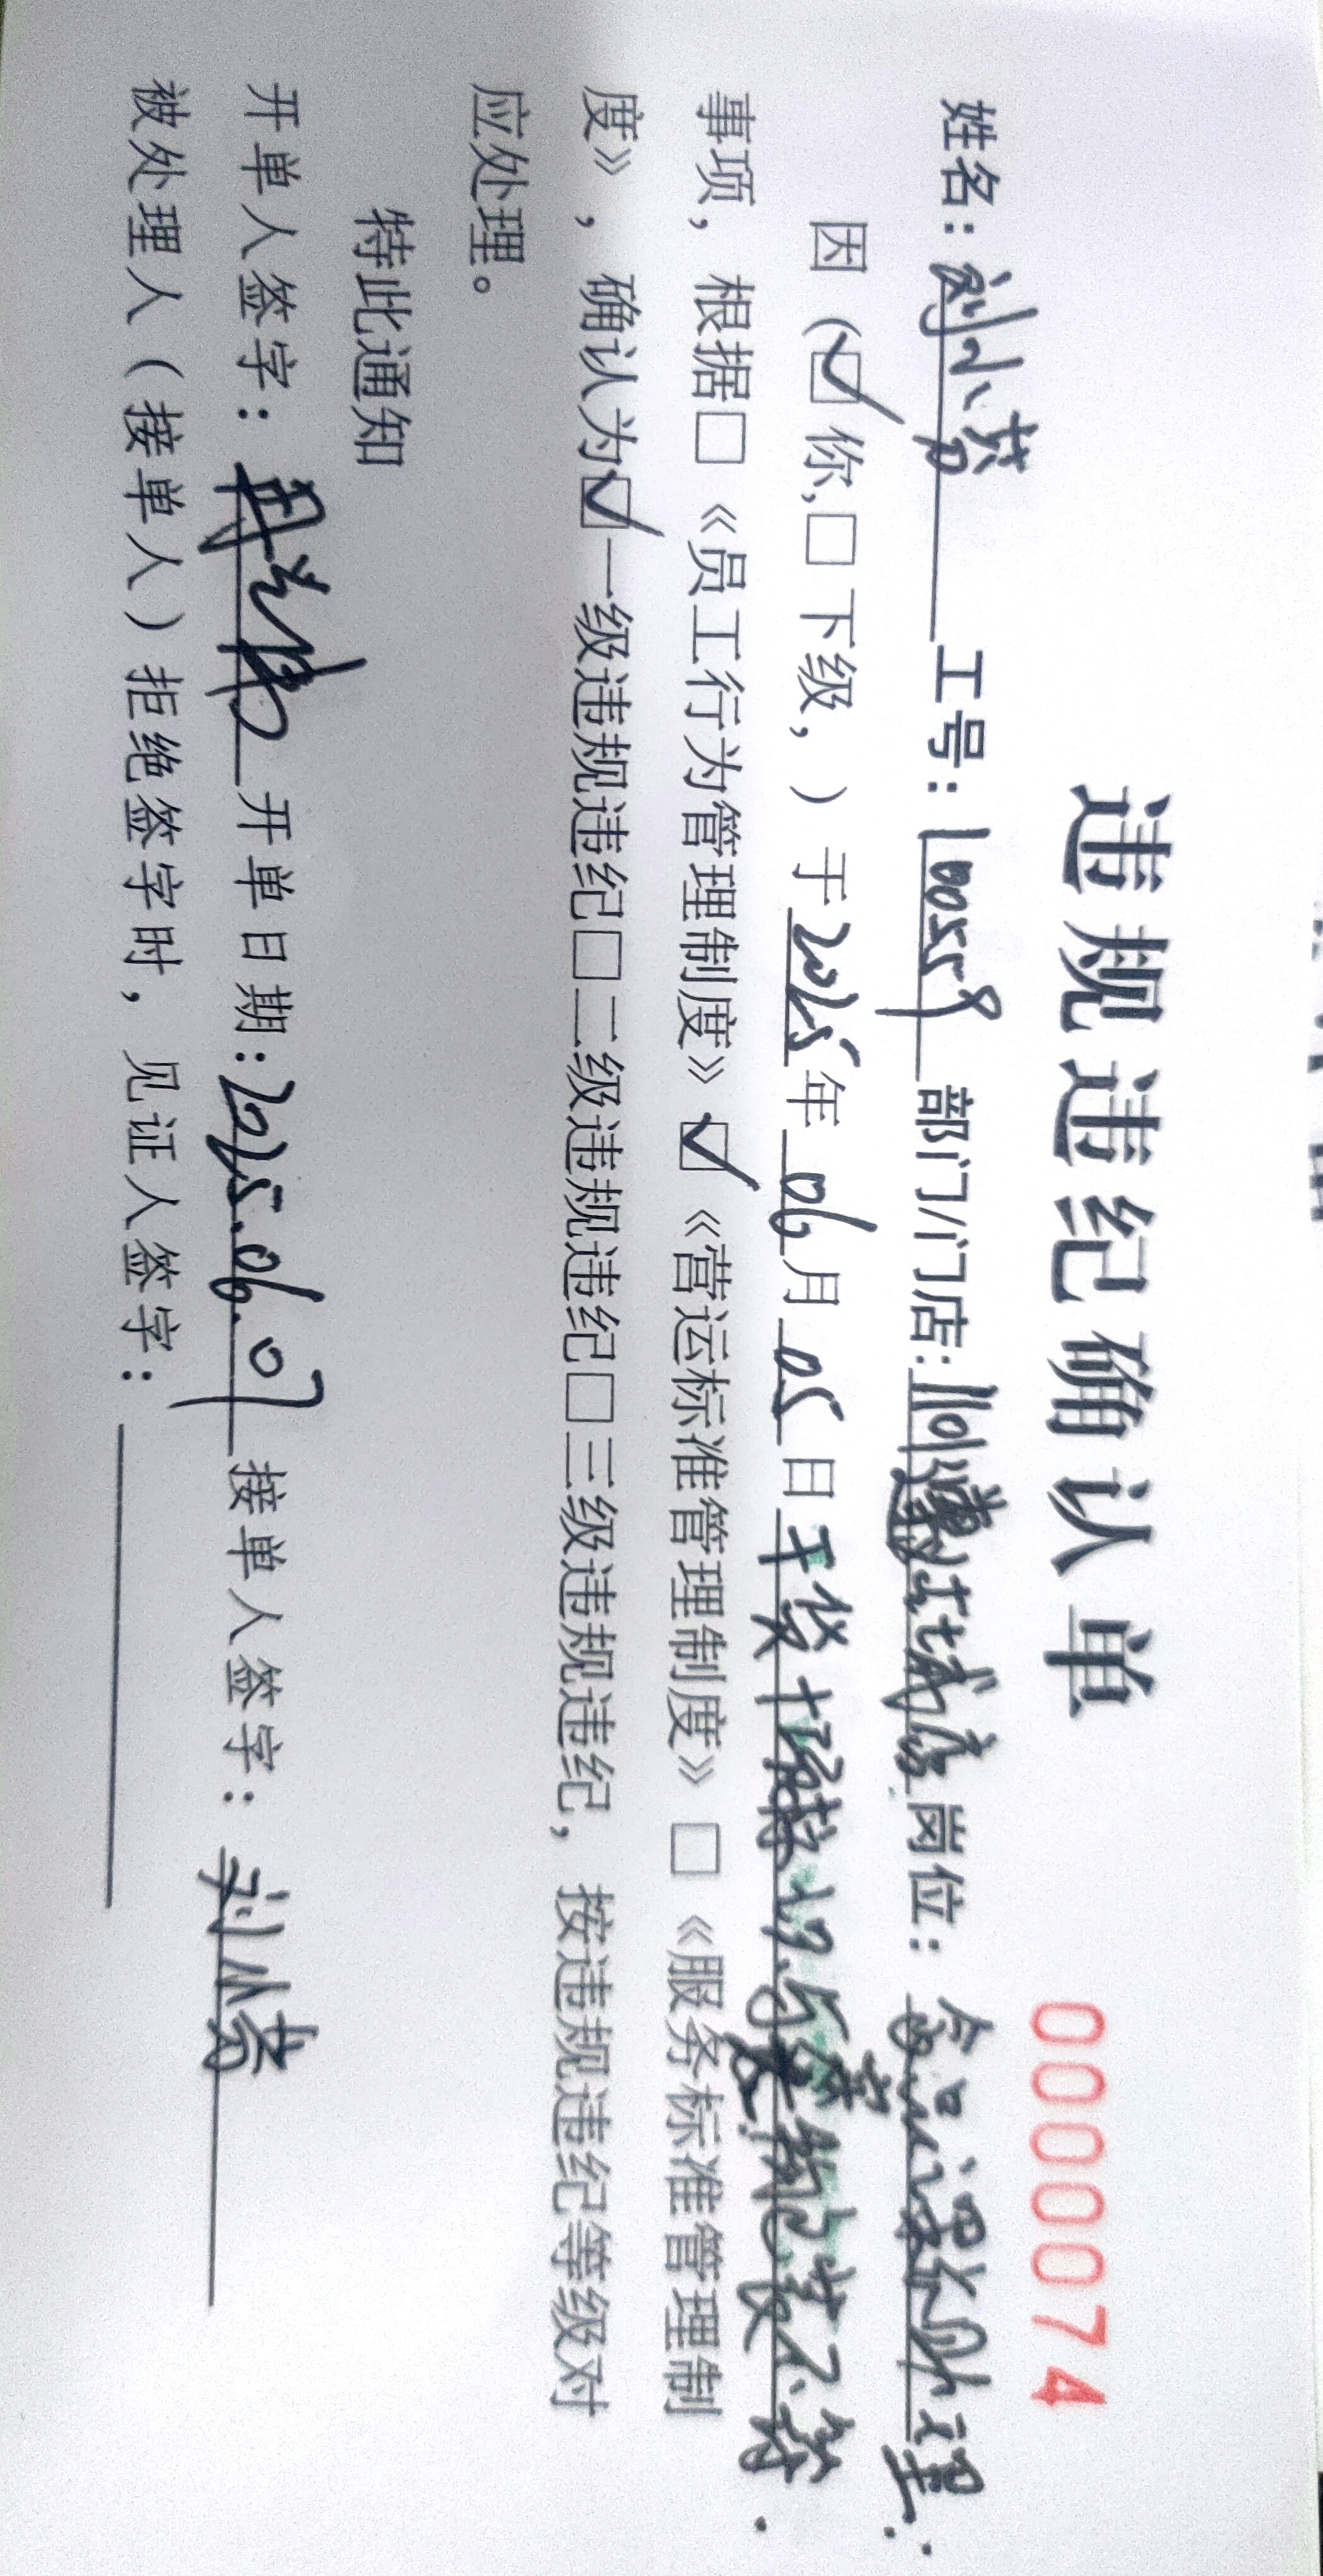 违规违纪确认单
0000074
姓名：刘小 工号：10059 部门/门店：1101 店 岗位：食品课助理.
因（☑你,□下级，）于2025年06月05日干货 与 包装不符.
事项，根据□《员工行为管理制度》☑《营运标准管理制度》□《服务标准管理制
度》，确认为☑一级违规违纪□二级违规违纪□三级违规违纪，按违规违纪等级对
应处理。
特此通知
开单人签字： 开单日期：2025.06.07 接单人签字：刘小
被处理人（接单人）拒绝签字时，见证人签字：